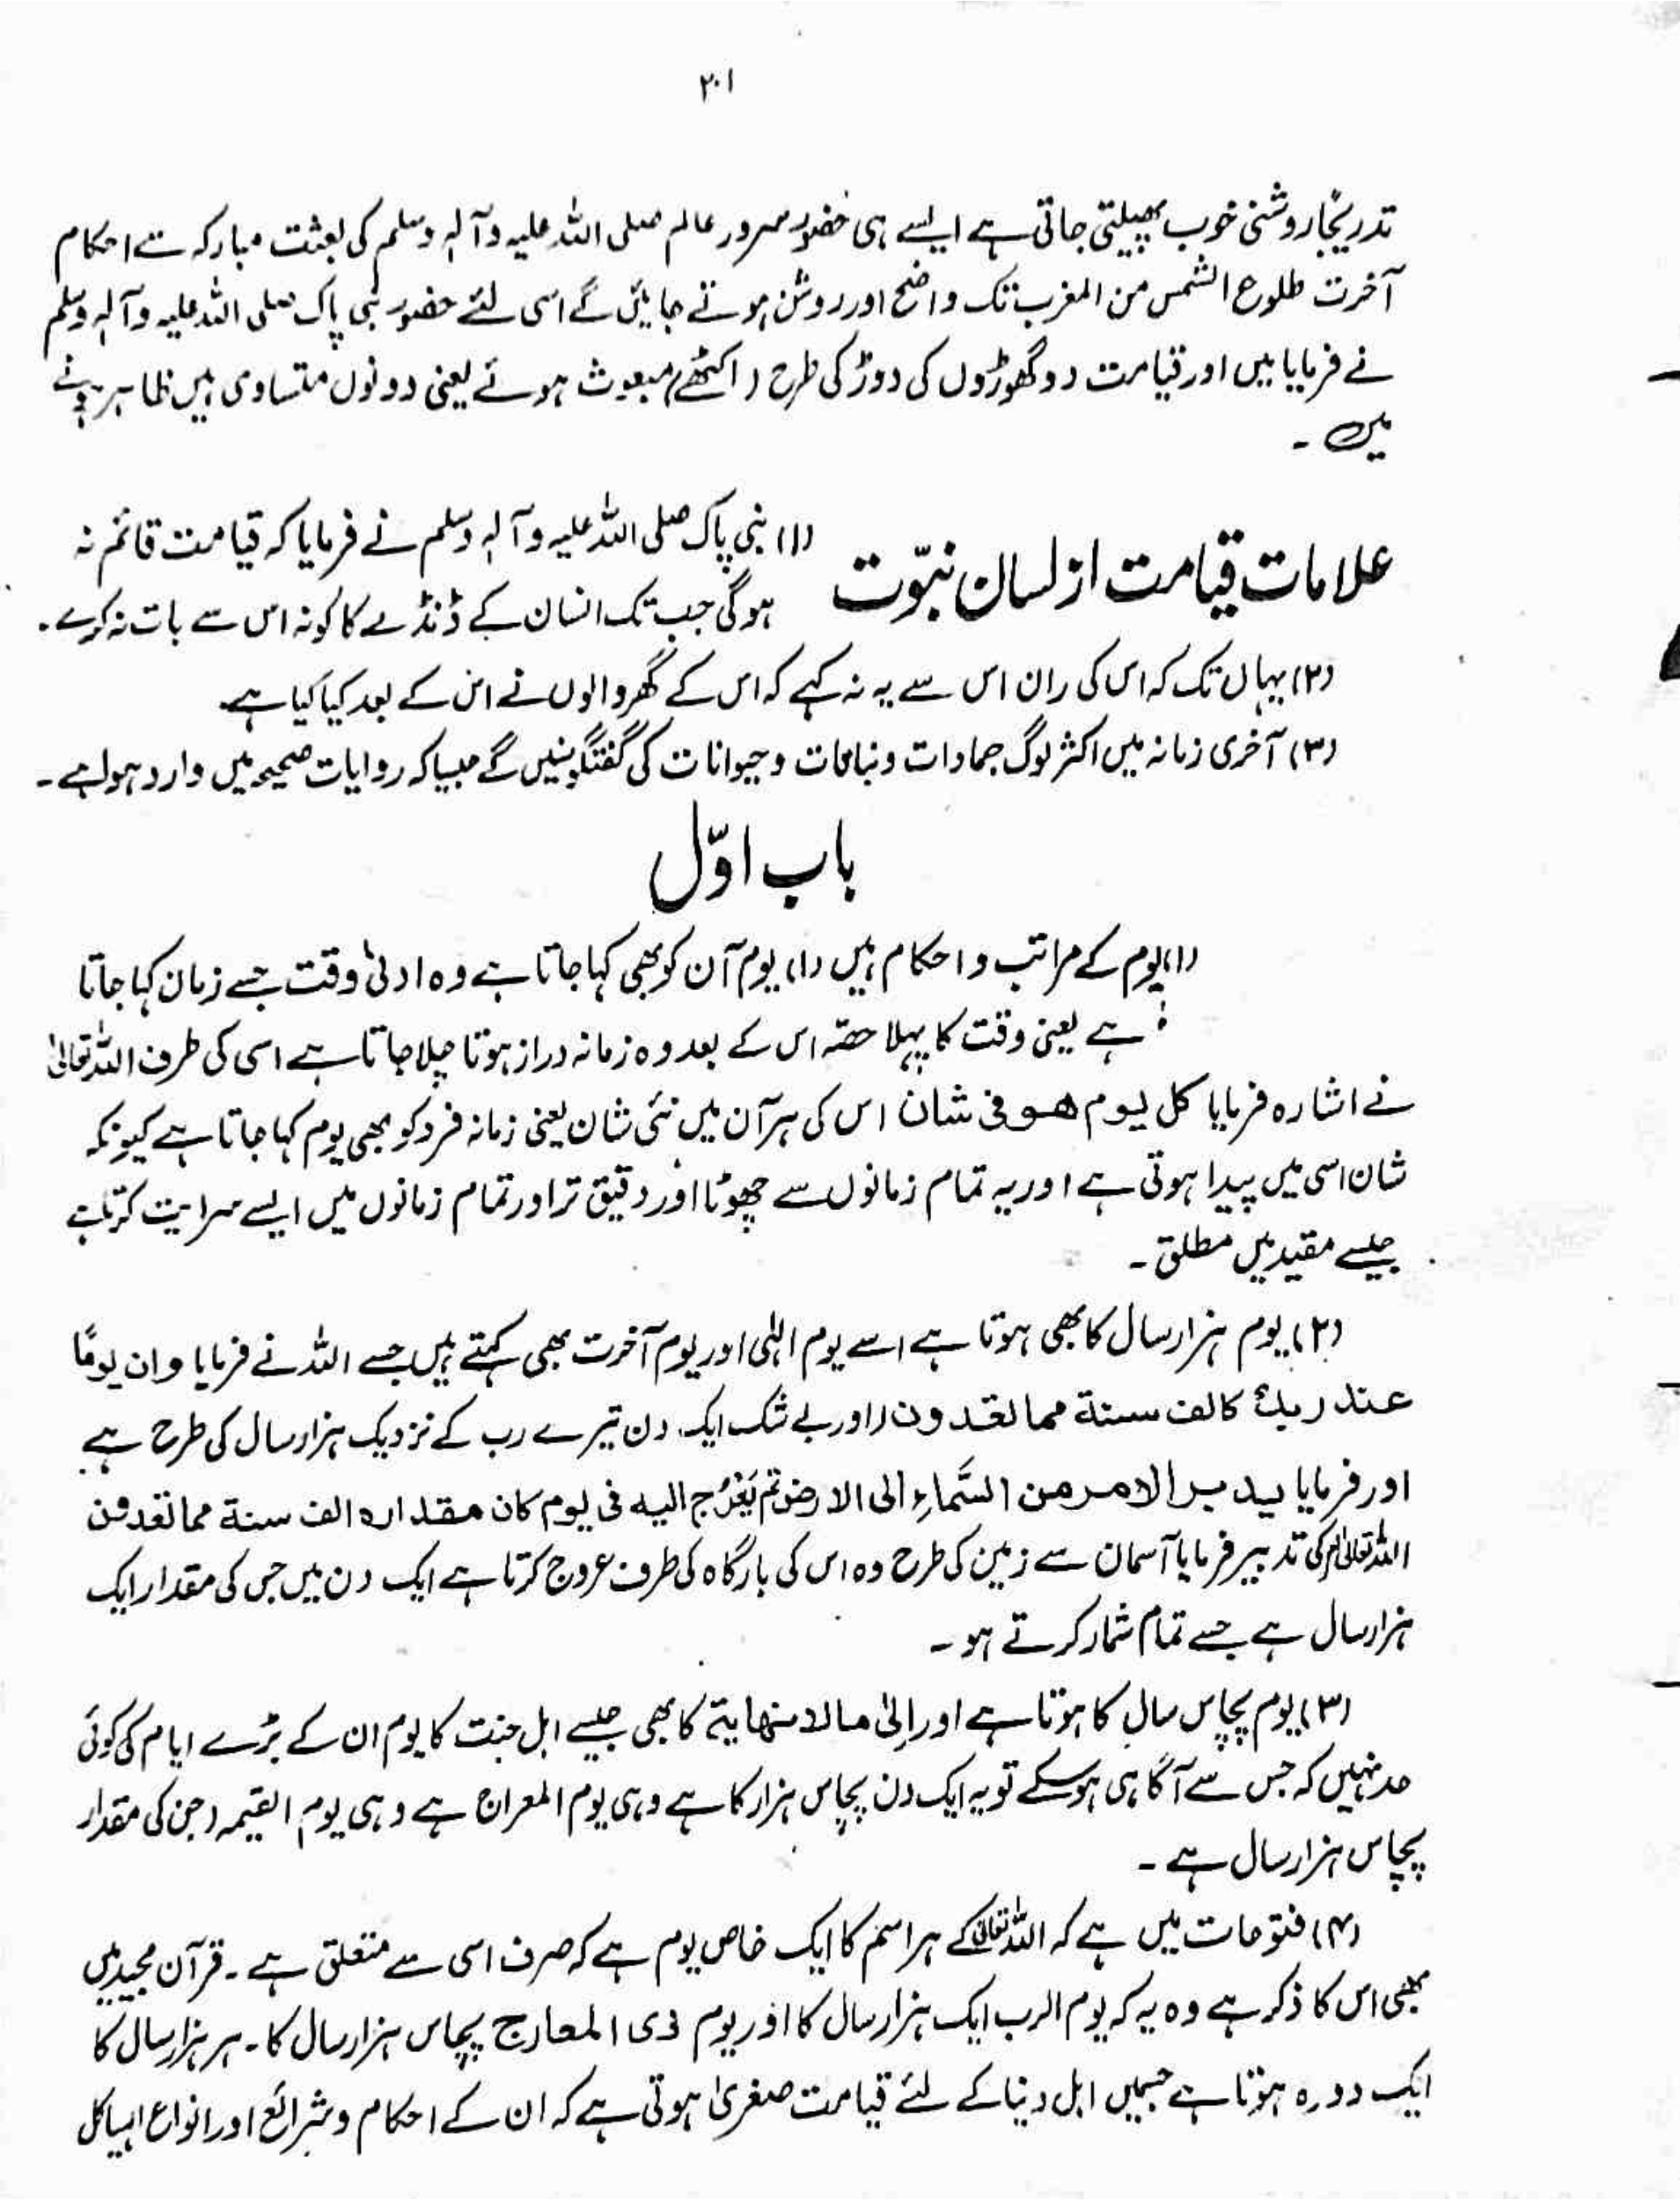 ۲۰۱
تدریجًا روشنی خوب پھیلتی جاتی ہے ایسے ہی حضور سرور عالم صلی اللہ علیہ وآلہٖ وسلم کی بعثت مبارکہ سے احکام
آخرت طلوع الشمس من المغرب تک واضح اور روشن ہوتے جائیں گے اسی لئے حضور نبی پاک صلی اللہ علیہ وآلہٖ وسلم
نے فرمایا میں اور قیامت دو گھوڑوں کی دوڑ کی طرح (اکٹھے) مبعوث ہوئے یعنی دونوں متساوی ہیں ظاہر ہونے
میں ۔
علامات قیامت از لسان نبوّت
(۱) نبی پاک صلی اللہ علیہ وآلہٖ وسلم نے فرمایا کہ قیامت قائم نہ
ہوگی جب تک انسان کے ڈنڈے کا کونہ اس سے بات نہ کرے ۔
(۲) یہاں تک کہ اس کی ران اس سے یہ نہ کہے کہ اس کے گھر والوں نے اس کے بعد کیا کیا ہے
(۳) آخری زمانہ میں اکثر لوگ جمادات و نباتات و حیوانات کی گفتگو سنیں گے جیسا کہ روایات صحیحہ میں وارد ہوا ہے ۔
باب اوّل
(۱) یوم کے مراتب و احکام ہیں (۱) یوم آن کو بھی کہا جاتا ہے وہ ادنیٰ وقت جسے زمان کہا جاتا
ہے یعنی وقت کا پہلا حصّہ اس کے بعد وہ زمانہ دراز ہوتا چلا جاتا ہے اسی کی طرف اللہ تعالیٰ
نے اشارہ فرمایا کل یوم ھو فی شان اس کی ہر آن میں نئی شان یعنی زمانہ فرد کو بھی یوم کہا جاتا ہے کیونکہ
شان اسی میں پیدا ہوتی ہے اور یہ تمام زمانوں سے چھوٹا اور دقیق تر اور تمام زمانوں میں ایسے سرایت کرتا ہے
جیسے مقید میں مطلق ۔
(۲) یوم ہزار سال کا بھی ہوتا ہے اسے یوم الٰہی اور یوم آخرت بھی کہتے ہیں جسے اللہ نے فرمایا وان یومًا
عند ربک کالف سنة مما تعدون (اور بے شک ایک دن تیرے رب کے نزدیک ہزار سال کی طرح ہے
اور فرمایا یدبر الامر من السَّماءِ الی الارض ثم یَعْرُج الیه فی یوم کان مقداره الف سنة مما تعدون
اللہ تعالیٰ امر کی تدبیر فرمایا آسمان سے زمین کی طرح وہ اس کی بارگاہ کی طرف عروج کرتا ہے ایک دن میں جس کی مقدار ایک
ہزار سال ہے جسے تمام شمار کرتے ہو ۔
(۳) یوم پچاس سال کا ہوتا ہے اور الیٰ مالا نهایتہ کا بھی جیسے اہل جنت کا یوم ان کے بڑے ایام کی کوئی
حد نہیں کہ جس سے آگاہی ہو سکے تو یہ ایک دن پچاس ہزار کا ہے وہی یوم المعراج ہے وہی یوم القیمہ (جن کی مقدار
پچاس ہزار سال ہے ۔
(۴) فتوحات میں ہے کہ اللہ تعالیٰ کے ہر اسم کا ایک خاص یوم ہے کہ صرف اسی سے متعلق ہے ۔ قرآن مجید میں
بھی اس کا ذکر ہے وہ یہ کہ یوم الرب ایک ہزار سال کا اور یوم ذی المعارج پچاس ہزار سال کا ۔ ہر ہزار سال کا
ایک دورہ ہوتا ہے جسمیں اہل دنیا کے لئے قیامت صغریٰ ہوتی ہے کہ ان کے احکام و شرائع اور انواع الہیاکل